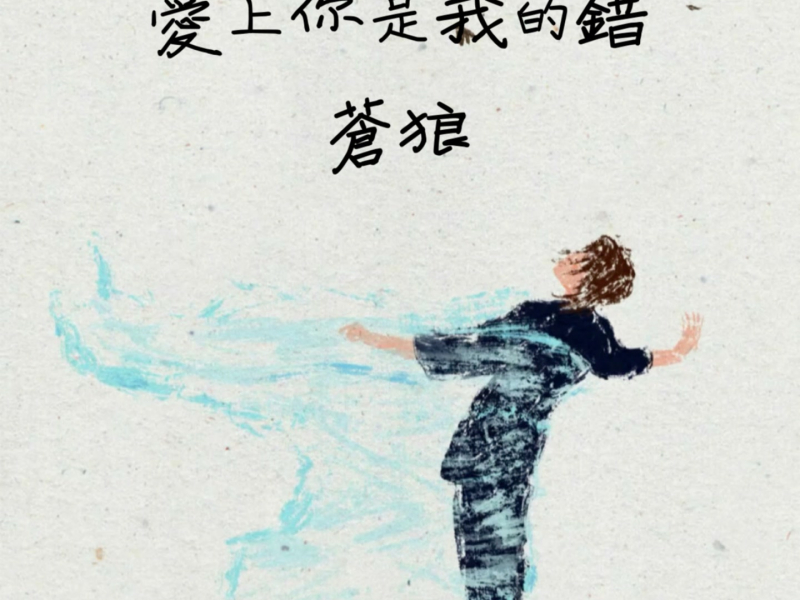 愛上你是我的錯
蒼狼